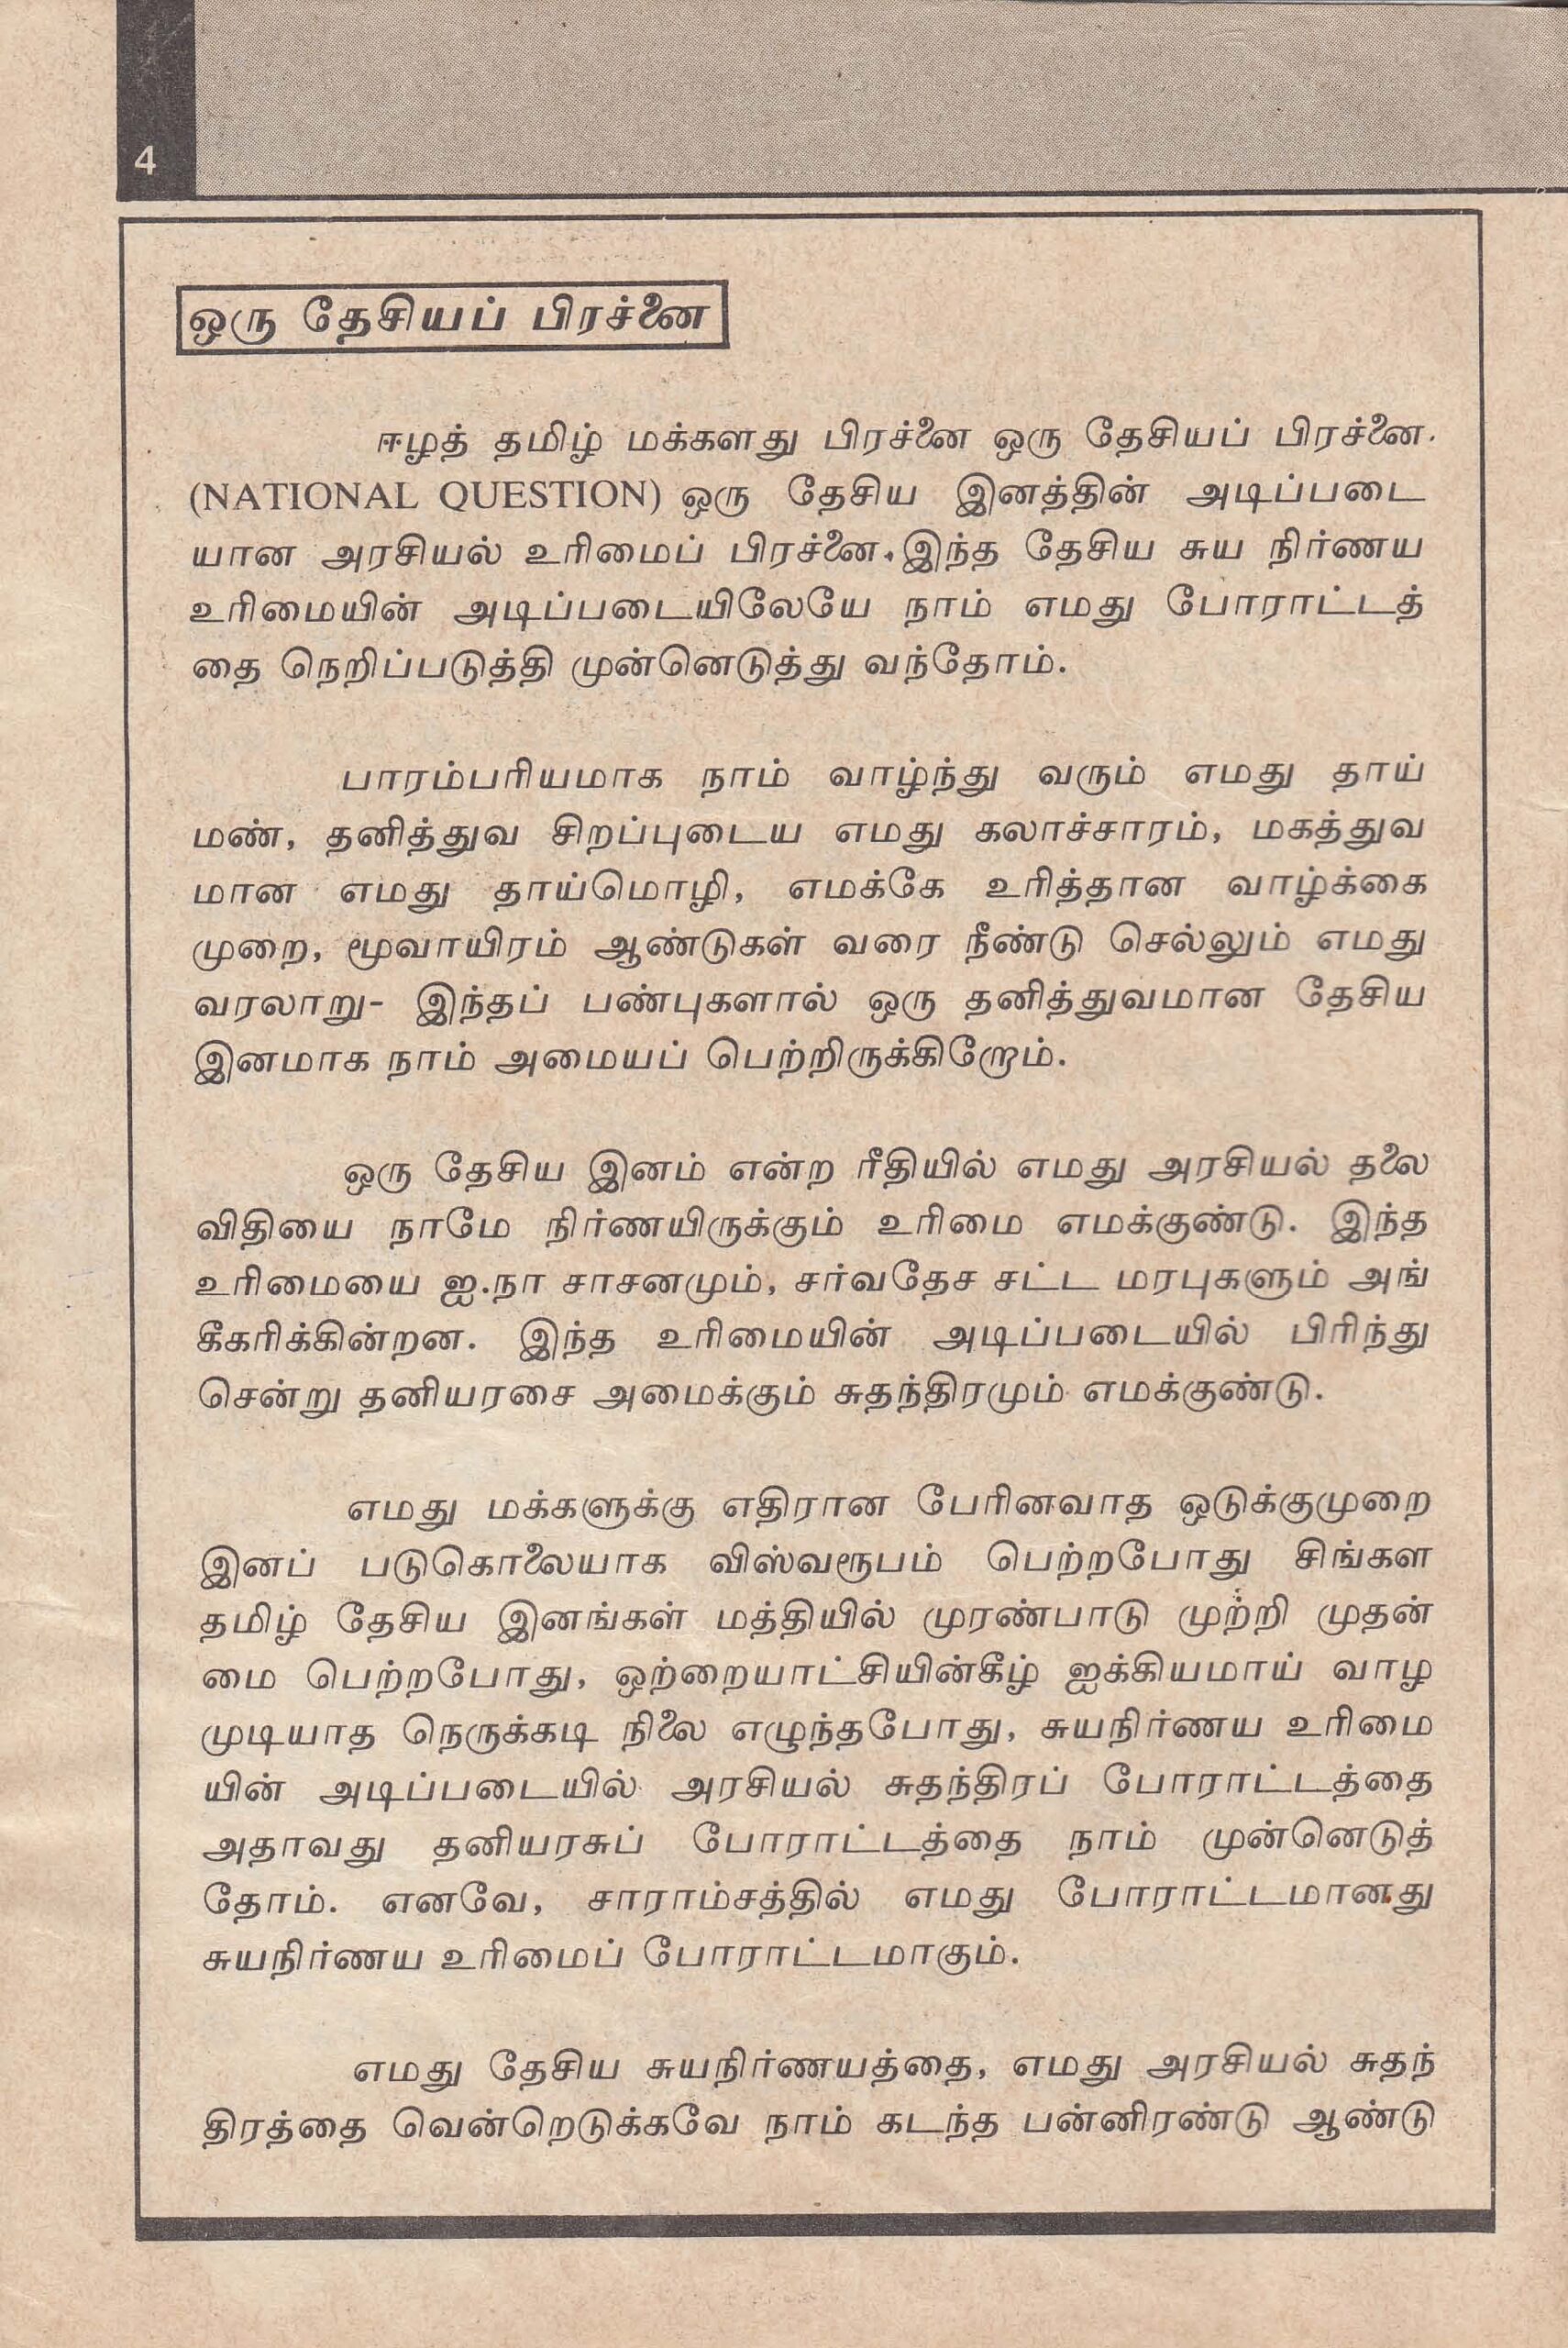 4
ஒரு தேசியப் பிரச்னை
ஈழத் தமிழ் மக்களது பிரச்னை ஒரு தேசியப் பிரச்னை.
(NATIONAL QUESTION) ஒரு தேசிய இனத்தின் அடிப்படை
யான அரசியல் உரிமைப் பிரச்னை. இந்த தேசிய சுய நிர்ணய
உரிமையின் அடிப்படையிலேயே நாம் எமது போராட்டத்
தை நெறிப்படுத்தி முன்னெடுத்து வந்தோம்.
பாரம்பரியமாக நாம் வாழ்ந்து வரும் எமது தாய்
மண், தனித்துவ சிறப்புடைய எமது கலாச்சாரம், மகத்துவ
மான எமது தாய்மொழி, எமக்கே உரித்தான வாழ்க்கை
முறை, மூவாயிரம் ஆண்டுகள் வரை நீண்டு செல்லும் எமது
வரலாறு- இந்தப் பண்புகளால் ஒரு தனித்துவமான தேசிய
இனமாக நாம் அமையப் பெற்றிருக்கிறோம்.
ஒரு தேசிய இனம் என்ற ரீதியில் எமது அரசியல் தலை
விதியை நாமே நிர்ணயிருக்கும் உரிமை எமக்குண்டு. இந்த
உரிமையை ஐ.நா சாசனமும், சர்வதேச சட்ட மரபுகளும் அங்
கீகரிக்கின்றன. இந்த உரிமையின் அடிப்படையில் பிரிந்து
சென்று தனியரசை அமைக்கும் சுதந்திரமும் எமக்குண்டு.
எமது மக்களுக்கு எதிரான பேரினவாத ஒடுக்குமுறை
இனப் படுகொலையாக விஸ்வரூபம் பெற்றபோது சிங்கள
தமிழ் தேசிய இனங்கள் மத்தியில் முரண்பாடு முற்றி முதன்
மை பெற்றபோது, ஒற்றையாட்சியின்கீழ் ஐக்கியமாய் வாழ
முடியாத நெருக்கடி நிலை எழுந்தபோது, சுயநிர்ணய உரிமை
யின் அடிப்படையில் அரசியல் சுதந்திரப் போராட்டத்தை
அதாவது தனியரசுப் போராட்டத்தை நாம் முன்னெடுத்
தோம். எனவே, சாராம்சத்தில் எமது போராட்டமானது
சுயநிர்ணய உரிமைப் போராட்டமாகும்.
எமது தேசிய சுயநிர்ணயத்தை, எமது அரசியல் சுதந்
திரத்தை வென்றெடுக்கவே நாம் கடந்த பன்னிரண்டு ஆண்டு